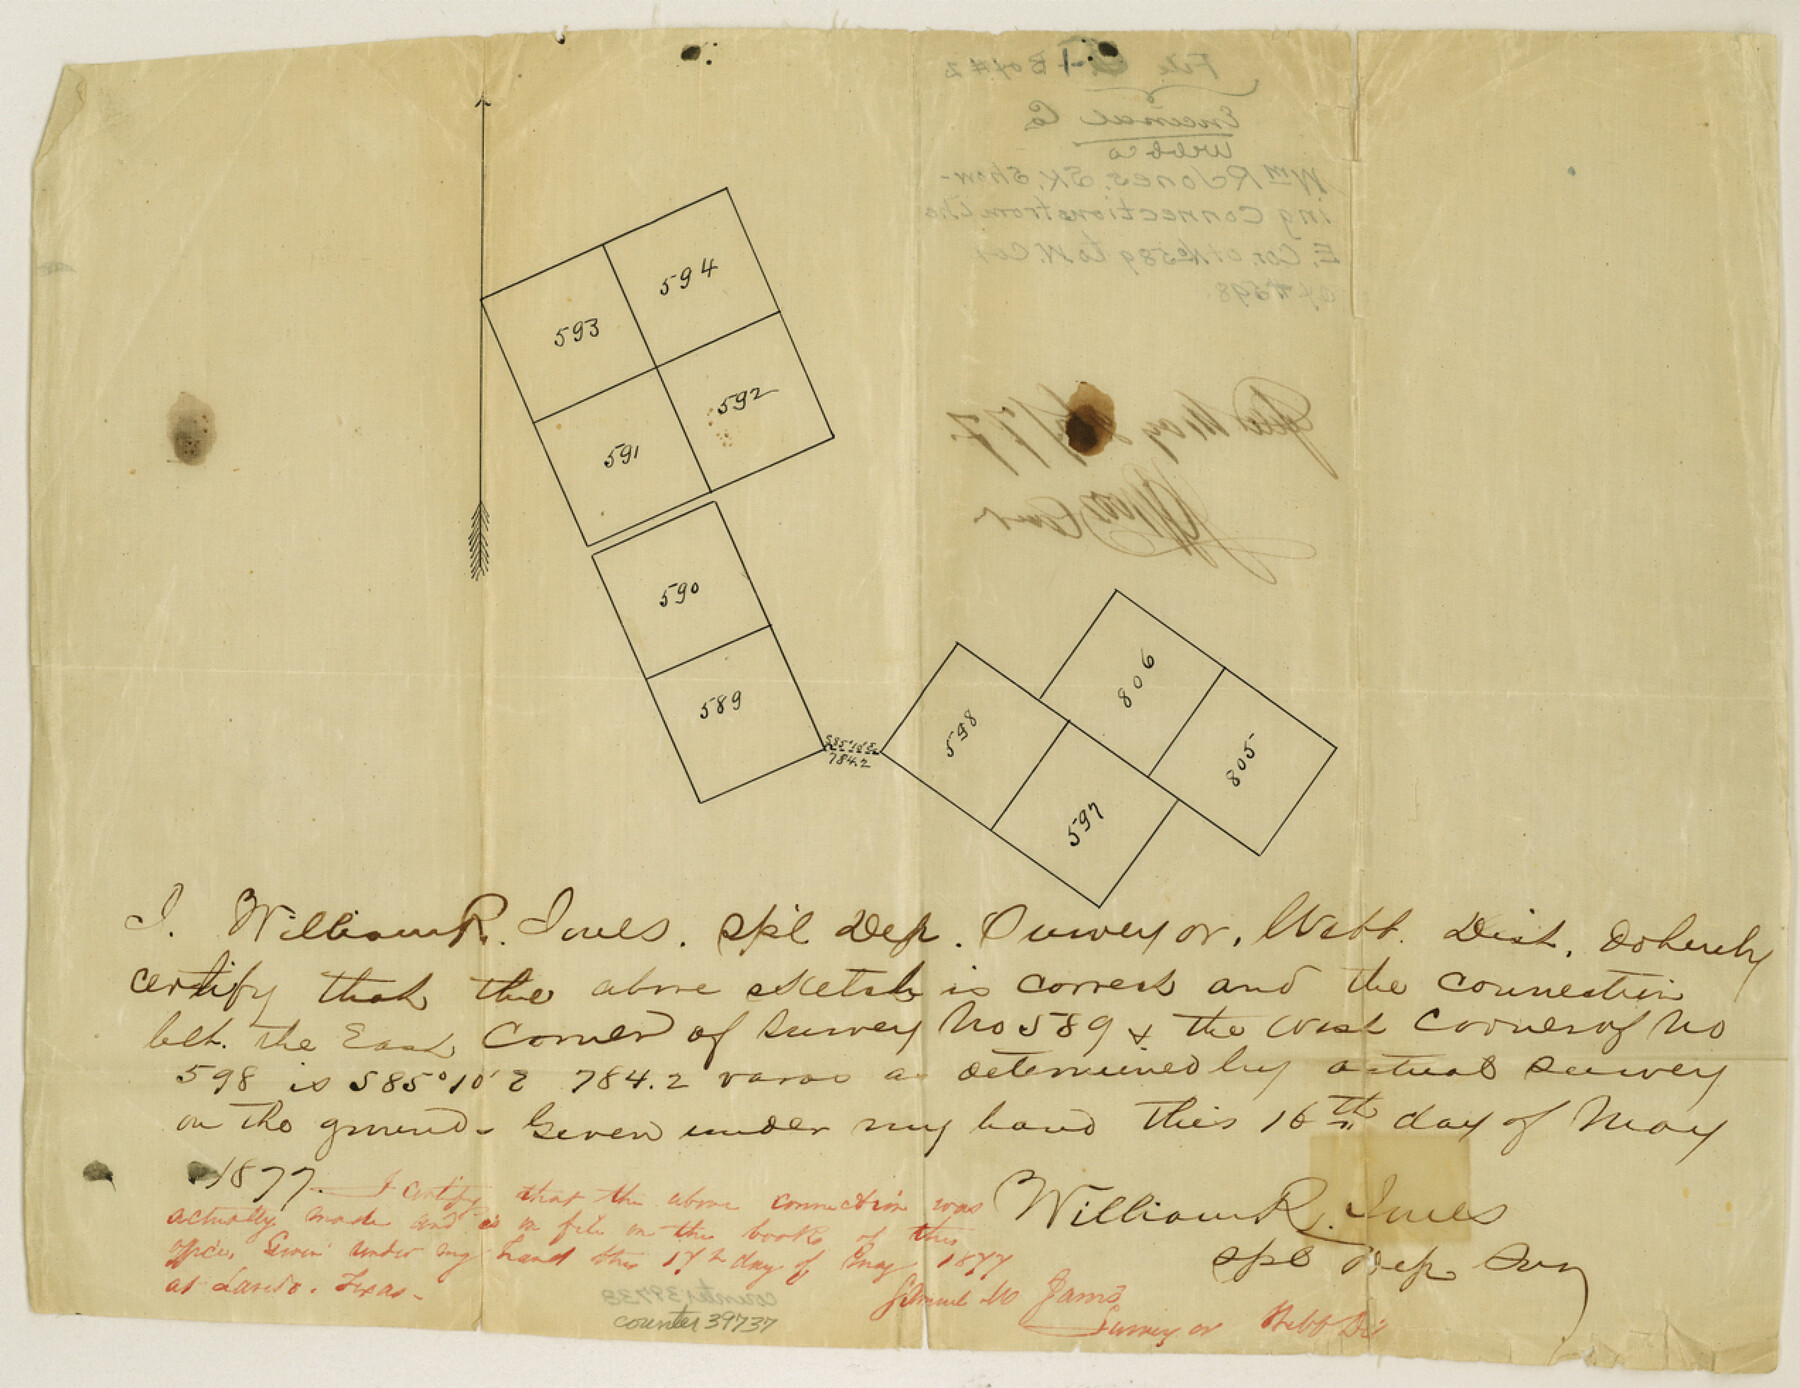 594
593
592
591
590
589
S85°10'E
784.2
806
598
805
597
I. William R. Jones. Sp'l Dep. Surveyor, Webb. Dist. do hereby
certify that the above sketch is correct and the connection
bet. the East Corner of Survey No 589 & the West Corner of No
598 is S85°10'E 784.2 varas as determined by actual survey
on the ground - Given under my hand this 16th day of May
1877.
William R. Jones
Spl Dep Sur
I certify that the above connection was
actually made and is on file in the books of this
office. Given under my hand this 17th day of May 1877
at Laredo. Texas.
Samuel M Jarvis
Surveyor Webb Dis
counter 39737
counter 39738
File Box #2
Encinal Co
Webb Co
Wm R Jones, Sk. Show-
ing Connections from the
E. Cor. of No 589 to W. Cor
of #598.
Filed May /77